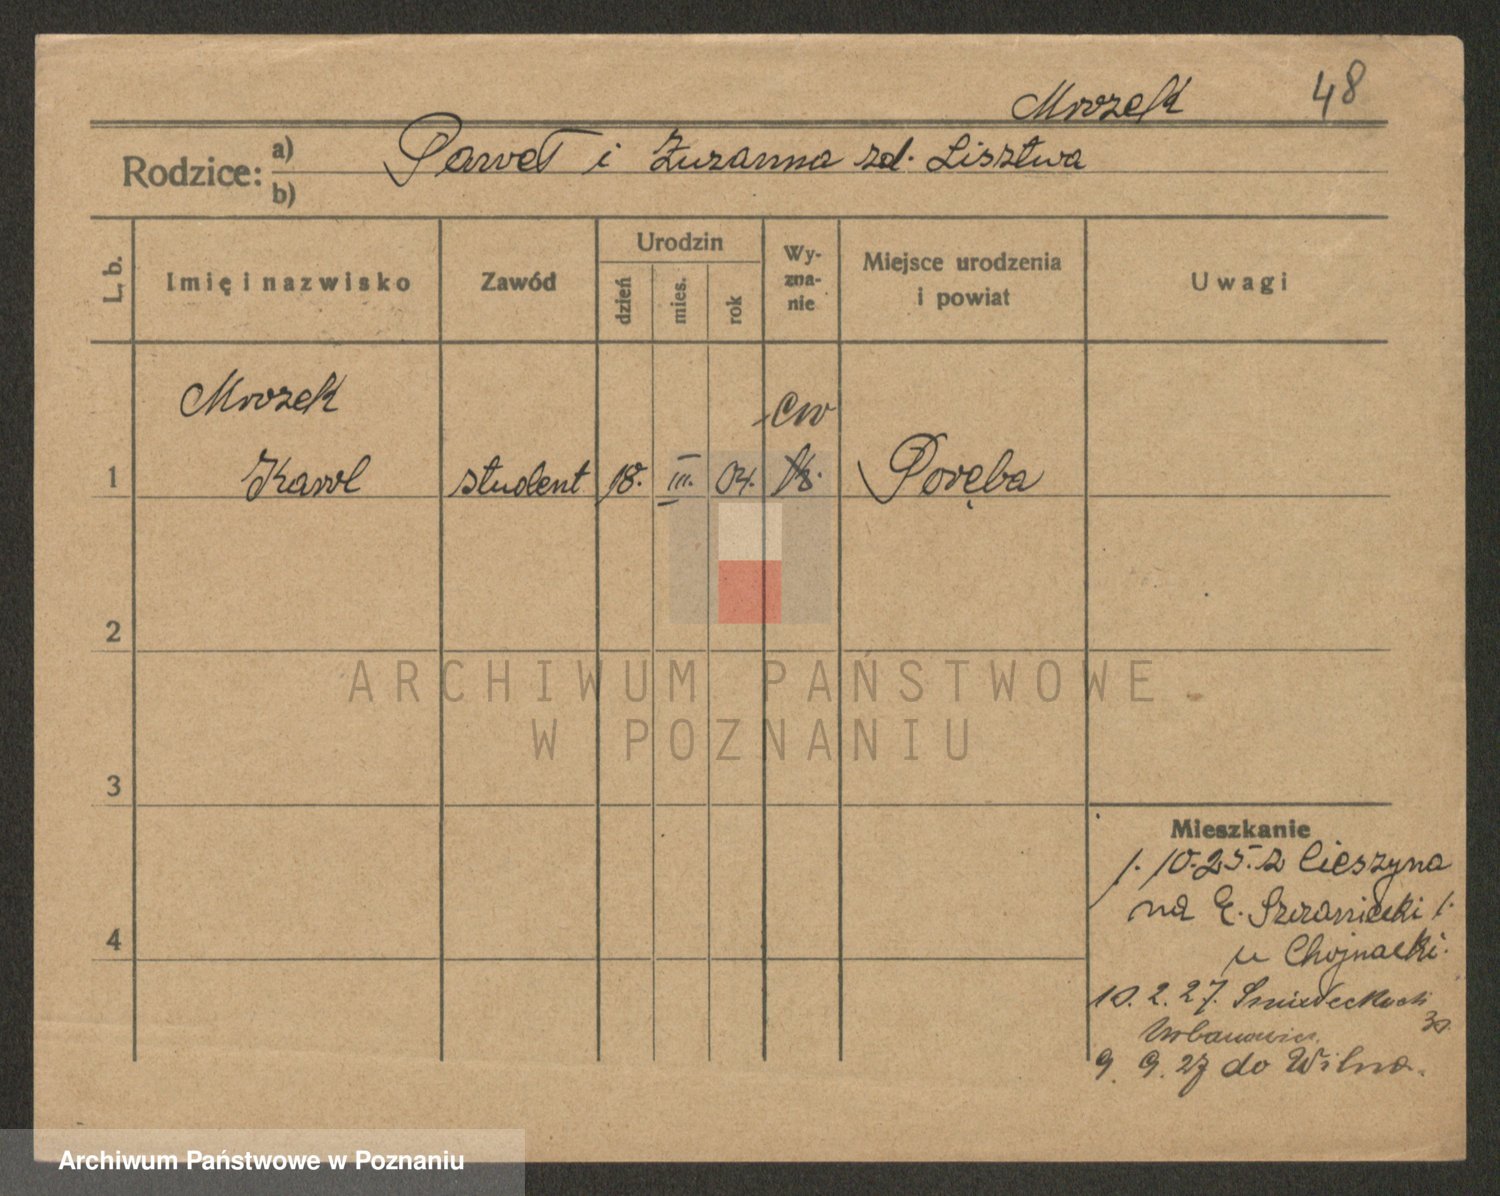 Mrozek 48
Rodzice: a) Paweł i Zuzanna zd. Lisztwa
b)
L. b. Imię i nazwisko Zawód Urodzin dzień mies. rok Wy-zna-nie Miejsce urodzenia i powiat Uwagi
Mrozek ew
1 Karol student 18. III. 04. Poręba
2
ARCHIWUM PAŃSTWOWE
W POZNANIU
3
Mieszkanie
1. 10. 25. z Cieszyna
na E. Szczanieckiej 1.
4
u Chojnacki.
10. 2. 27. Śniadeckich
30.
9. 9. 27 do Wilna.
Archiwum Państwowe w Poznaniu